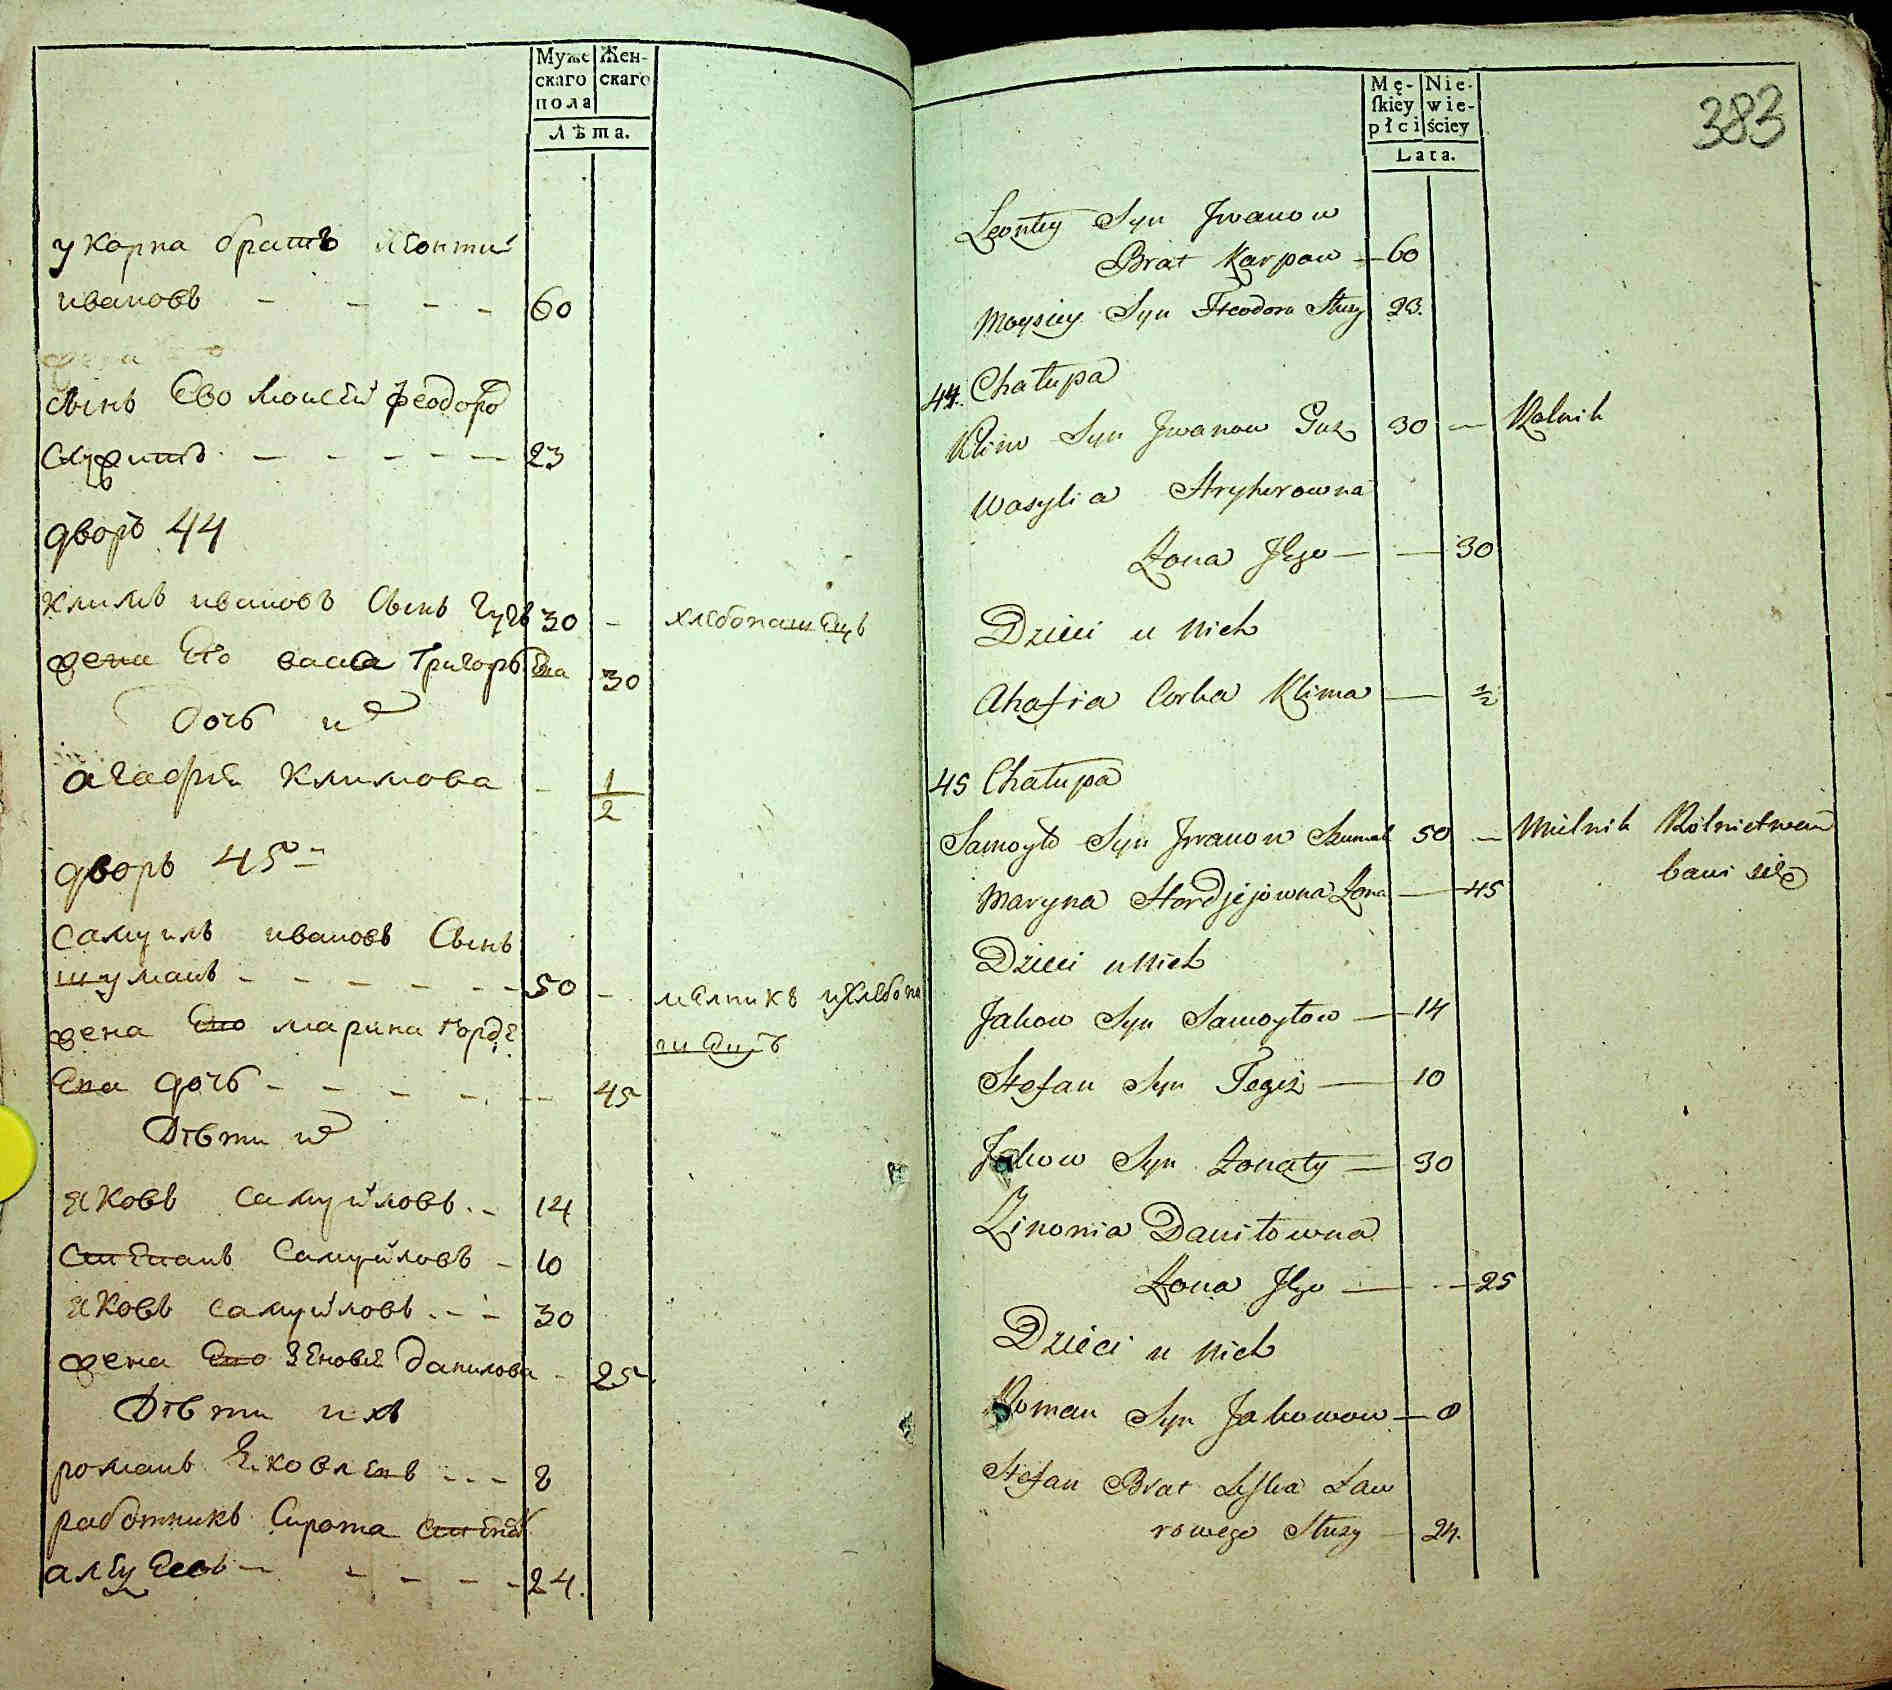 Муже
скаго
пола
Жен-
скаго
Лѣта.
у Карпа братъ леонтий
ивановъ - - - - 60
сынъ Ево моисей феодоро
Служитъ - - - - - 23
дворъ 44
климъ ивановъ Сынъ гузъ 30 - хлебопашецъ
жена Его васса Григорьева 30
дочь их
агафия климова - 1/2
дворъ 45
самуилъ ивановъ Сынъ
шуманъ - - - - - 50 - мелникъ и хлебопа
шецъ
жена Его марина горде
Ева дочь - - - - - 45
Дѣти их
яковъ самуйловъ - 14
Степанъ Самуйловъ - 10
яковъ самуйловъ - - 30
жена Его Зеновия данилова - 25
Дѣти ихъ
романъ Яковлевъ - - - 8
работникъ Сирота Степанъ
- - - - 24.
Mę-
skiey
płci
Nie-
wie-
ściey
Lata.
383
Leontey Syn Jwanow
Brat Karpow — 60
Moysiey Syn Fteodora Służy 23.
44. Chałupa
Klim Syn Jwanow Guz 30 — Rolnik
Wasylia Hryhorowna
Żona Jego — — 30
Dzieci u Nich
Ahafia Corka Klima — 1/2
45 Chałupa
Samoyło Syn Jwanow Szuman 50 — Mielnik Rolnictwem
bawi się
Maryna Hordjejowna Żona — 45
Dzieci u Nich
Jakow Syn Samoyłow — 14
Stefan Syn Tegoż — 10
Jakow Syn Żonaty — 30
Zinonia Daniłowna
Żona Jego — — 25
Dzieci u Nich
Roman Syn Jakowow — 8
Stefan Brat Law
rowego Służy — 24.